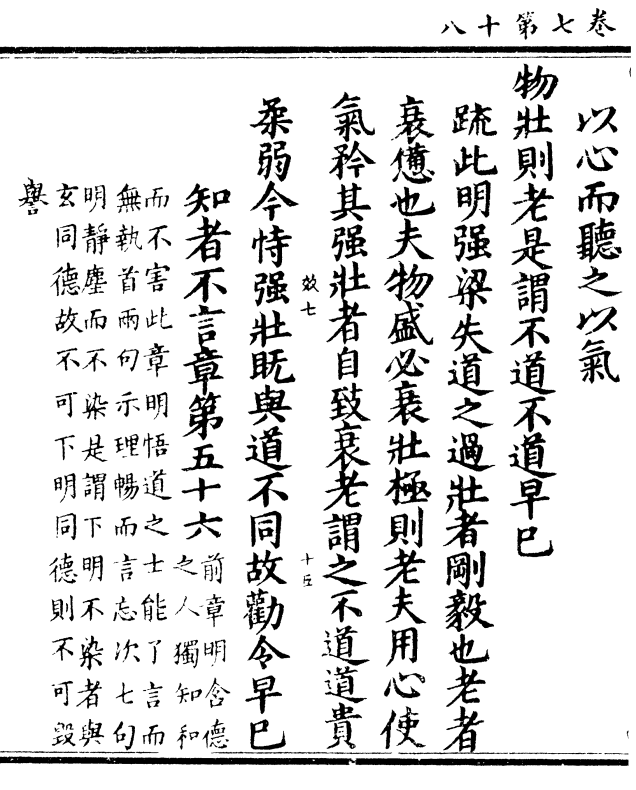 八十第七卷
以心而聽之以氣
物壯則老是謂不道不道早已
疏此明强梁失道之過壯者剛毅也老者
衰憊也夫物盛必衰壯極則老夫用心使
氣矜其强壯者自致衰老謂之不道道貴
效七
十五
柔弱今恃强壯旣與道不同故勸令早已
知者不言章第五十六
前章明含德
之人獨知和
而不害此章明悟道之士能了言而
無執首兩句示理暢而言忘次七句
明靜塵而不染是謂下明不染者與
玄同德故不可下明同德則不可毀
譽